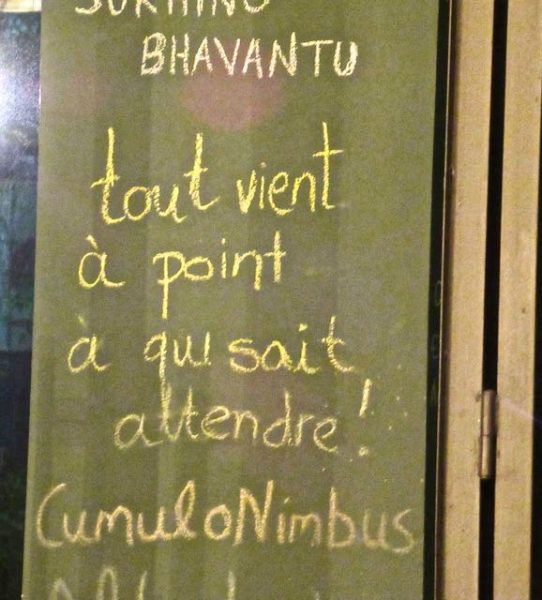 SUKHINO
BHAVANTU
tout vient
à point
à qui sait
attendre!
CumuloNimbus